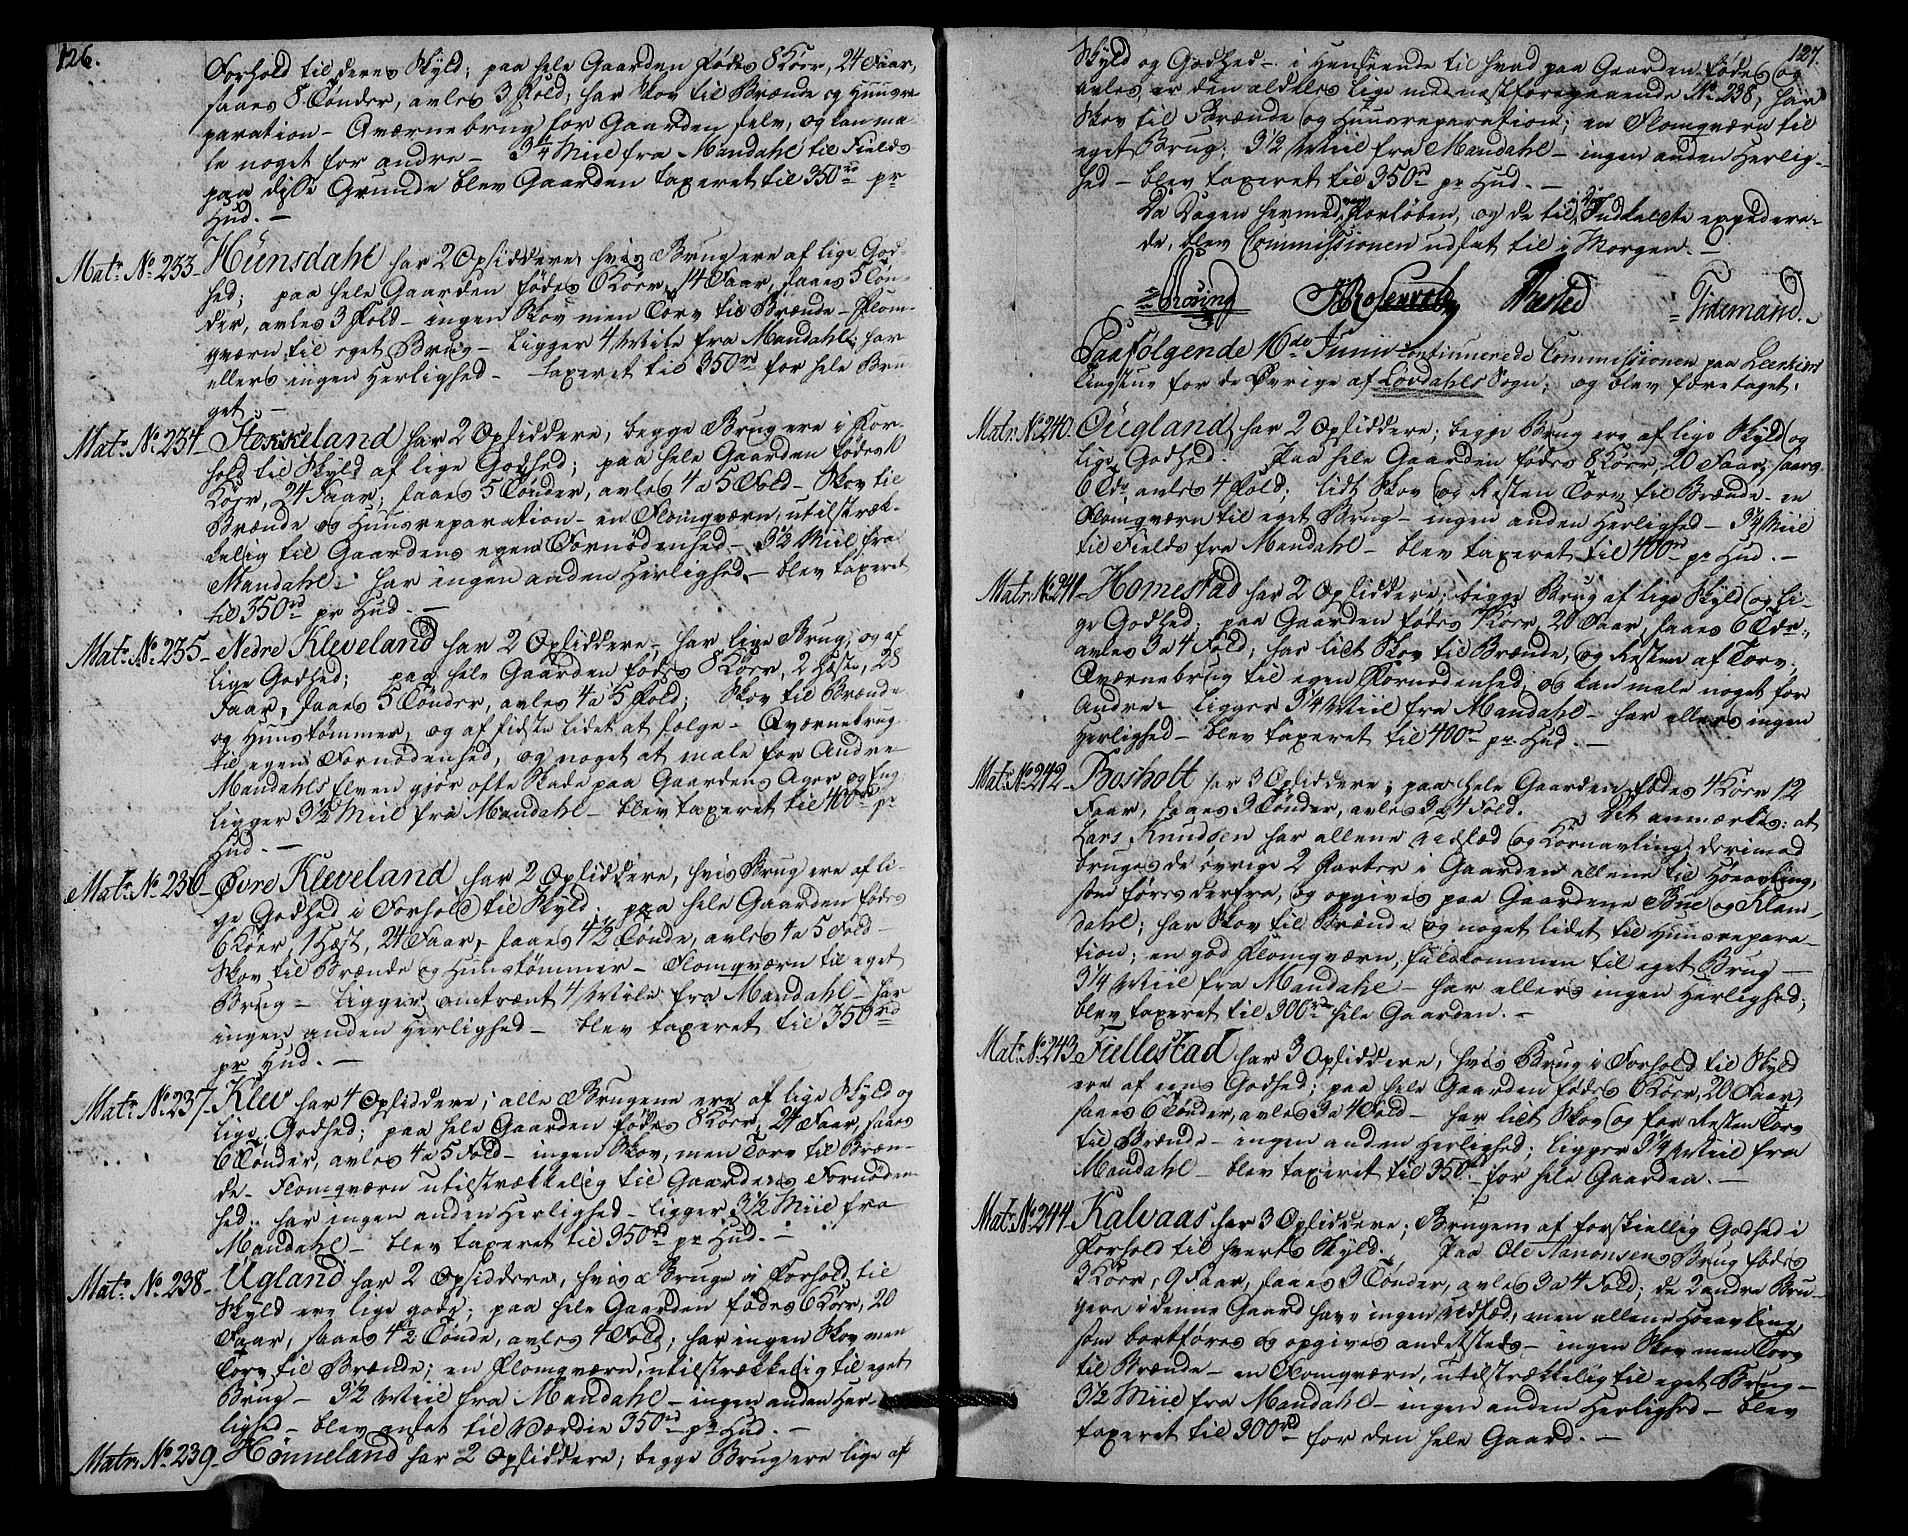 126.
Forhold til deres Skyld; paa hele Gaarden fødes 8 Köer, 24 Faar,
saaes 8 Tønder, avles 3 Fold; har Skov til Brænde og Huusre
paration – Qværnebrug for Gaarden selv, og kan ma-
le noget for andre – 3 1/4 Miil fra Mandahl til Fields
paa disse Grunde blev Gaarden taxeret til 350 rd pr
Hud. –
Matr. No. 233 – Hünsdahl har 2 Opsiddere, hvis Brug ere af lige God-
hed; paa hele Gaarden fødes 6 Kör, 14 Faar, saaes 5 Tøn-
der, avles 3 Fold – ingen Skov men Torv til Brænde – Flom-
qværn til eget Brug – ligger 4 Miile fra Mandahl; har
ellers ingen Herlighed – taxeret til 350 rd for hele Bru
get –
Matr. No. 234 – Støkkeland har 2 Opsiddere, begge Brug ere i For-
hold til Skyld af lige Godhed; paa hele Gaarden fødes 10
Köer, 24 Faar, saaes 5 Tønder, avles 4 a 5 Fold – Skov til
Brænde og Huusreparation – en Flomqværn, utilstræk-
kelig til Gaardens egen Fornødenhed – 3 1/2 Miil fra
Mandahl: har ingen anden Herlighed – blev taxeret
til 350 rd pr Hud. –
Matr. No. 235 – Nedre Kleveland har 2 Opsiddere, har lige Brug, og af
lige Godhed; paa hele Gaarden fødes 8 Köer, 2 Heste, 28
Faar, saaes 5 Tønder, avles 4 a 5 Fold; Skov til Brænde
og Huustømmer, og af sidste lidet at sælge – Qværnebrug
til egen Fornødenhed, og noget at male for Andre
Mandahls Elven gjør ofte Skade paa Gaardens Ager og Eng
ligger 3 1/2 Miil fra Mandahl – blev taxeret til 400 rd pr
Hud. –
Matr. No. 236 – Øvre Kleveland har 2 Opsiddere, hvis Brug ere af li-
ge Godhed i Forhold til Skyld. paa hele Gaarden fødes
6 Köer, 1 Hest, 24 Faar, saaes 4 1/2 Tønde, avles 4 a 5 Fold –
Skov til Brænde og Huustømmer – Flomqværn til eget
Brug – ligger omtrent 4 Miile fra Mandahl – har
ingen anden Herlighed – blev taxeret til 350 rd
pr Hud. –
Matr. No. 237 – Klev har 4 Opsiddere; alle Brugene ere af lige Skyld og
lige Godhed; paa hele Gaarden fødes 8 Köer, 24 Faar, saaes
6 Tønder, avles 4 a 5 Fold – ingen Skov, men Torv til Bræn-
de – Flomqværn utilstrækkelig til Gaardens Fornøden
hed. har ingen anden Herlighed – ligger 3 1/2 Miil fra
Mandahl – blev taxeret til 350 rd pr Hud. –
Matr. No. 238 – Ügland har 2 Opsiddere, hvis Brug i Forhold til
Skyld ere lige gode; paa hele Gaarden fødes 6 Köer, 20
Faar, saaes 4 1/2 Tønde, avles 4 Fold; har ingen Skov men
Torv til Brænde; en Flomqværn utilstrækkelig til eget
Brug – 3 1/2 Miil fra Mandahl – ingen anden Her-
lighed – blev ansat til Værdie 350 rd pr Hud. –
Matr. No. 239 – Hönneland har 2 Opsiddere; begge Brug ere lige af
127.
Skyld og Godhed – i Henseende til hvad paa Gaarden fødes og
avles, er den aldeles lige med næstforegaaende No. 238, har
Skov til Brænde og Huusreparation; en Flomqværn til
eget Brug. 3 1/2 Miil fra Mandahl – ingen anden Herlig-
hed – blev taxeret til 350 rd pr Hud. –
Da Dagen hermed var forløben, og de til i Dag Indkaldte expedere-
de, blev Commissionen udsat til i Morgen. –
Tidemand.
Paafølgende 16de Junii continuerede Commissionen paa
Tingstue for de Øvrige af Løvdahls Sogn; og blev foretaget.
Matr. No. 240. Öügland, har 2 Opsiddere; begge Brug ere af lige Skyld og
lige Godhed. Paa hele Gaarden fødes 8 Köer, 20 Faar, saaes
6 Tdr avles 4 Fold; lidt Skov og Resten Torv til Brænde – en
Flomqværn til eget Brug – ingen anden Herlighed – 3 1/4 Miil
til Fields fra Mandahl – blev taxeret til 400 rd pr Hud. –
Matr. No. 241 – Homestad har 2 Opsiddere; begge Brug af lige Skyld og li-
ge Godhed; paa Gaarden fødes 7 Köer, 20 Faar, saaes 6 Tdr.,
avles 3 a 4 Fold; har lidt Skov til Brænde, og Resten af Torv.
Qværnebrug til egen Fornødenhed, og kan male noget for
Andre – ligger 3 1/4 Miil fra Mandahl – har ellers ingen
Herlighed – blev taxeret til 400 rd pr Hud. –
Matr. No. 242 – Bosholt har 3 Opsiddere; paa hele Gaarden fødes 4 Köer 12
Faar, saaes 3 Tønder, avles 3 a 4 Fold. Det anmærkes: at
Lars Knudsen har allene Udsæd og Kornavling; derimod
bruges de övrige 2 Parter i Gaarden allene til Høeavling,
som føres derfra, og opgives paa Gaardene Bue og Klan-
dahl; har Skov til Brænde og noget lidet til Huusrepara-
tion; en god Flomqværn, fuldkommen til eget Brug –
3 1/4 Miil fra Mandahl – har ellers ingen Herlighed;
blev taxeret til 300 rd hele Gaarden. –
Matr. No. 243 Fiellestad har 3 Opsiddere, hvis Brug i Forhold til Skyld
ere af eens Godhed; paa hele Gaarden fødes 6 Köer, 20 Faar,
saaes 6 Tønder, avles 3 a 4 Fold – har lidt Skov og for Resten Torv
til Brænde – ingen anden Herlighed; ligger 3 1/4 Miil fra
Mandahl – blev taxeret til 350 rd – for hele Gaarden. –
Matr. No. 244 – Kalvaas har 3 Opsiddere; Brugene af forskiellig Godhed i
Forhold til hverts Skyld. Paa Ole Aanonsens Brug fødes
3 Köer, 9 Faar, saaes 3 Tønder, avles 3 a 4 Fold; de 2 andre Bru-
gere i denne Gaard have ingen Udsæd, men allene Høeavling,
som bortføres og opgives andetsteds – ingen Skov men Torv
til Brænde – en Flomqværn, utilstrækkelig til eget Brug –
3 1/2 Miil fra Mandahl – ingen anden Herlighed – blev
taxeret til 300 rd for den hele Gaard. –